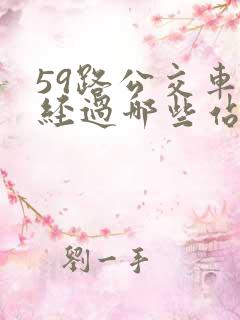 59路公交車
經過哪些佔
劉一手